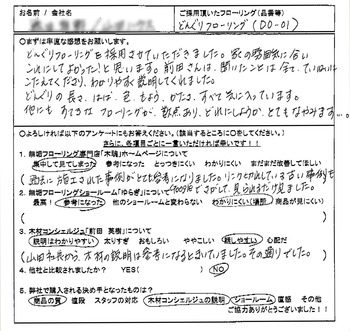 お名前 / 会社名
ご採用頂いたフローリング(品番等)
どんぐりフローリング (DO-01)
○まずは率直な感想をお願いします。
どんぐりフローリングを採用させていただきました。家の雰囲気に合い
これにしてよかった!と思います。前田さんは、聞いたことは全て、ていねいに
こたえてくださり、わかりやすく説明してくれました。
どんぐりの長さ、はば、色、もよう、かたさ、すべて気に入っています。
他にもすてきなフローリングが、数点あり、どれにしようか、とてもなやみます…。
○よろしければ以下のアンケートにもお答えください。(該当するところに○をしてください。)
さらに、各項目ごとに一言いただければ幸いです!!
1. 無垢フローリング専門店「木魂」ホームページについて
集中して見てしまった 参考になった とっつきにくい わかりにくい まだまだ改善してほしい
2. 無垢フローリングショールーム「ゆらぎ」について
最高! 参考になった 他のショールームと変わらない わかりにくい(場所) 商品が見にくい
3. 木材コンシェルジュ「前田 英樹」について
説明はわかりやすい 太りすぎ おもしろい ややこしい 親しやすい 心配だ
(山田社長から、木材の説明は参考になるときいていました。その通りでした。)
4. 他社と比較されましたか? YES( ) NO
5. 弊社で購入される決め手となったものは?
商品の質 値段 スタッフの対応 木材コンシェルジュの説明 ショールーム 直感 その他
ご協力ありがとうございました!